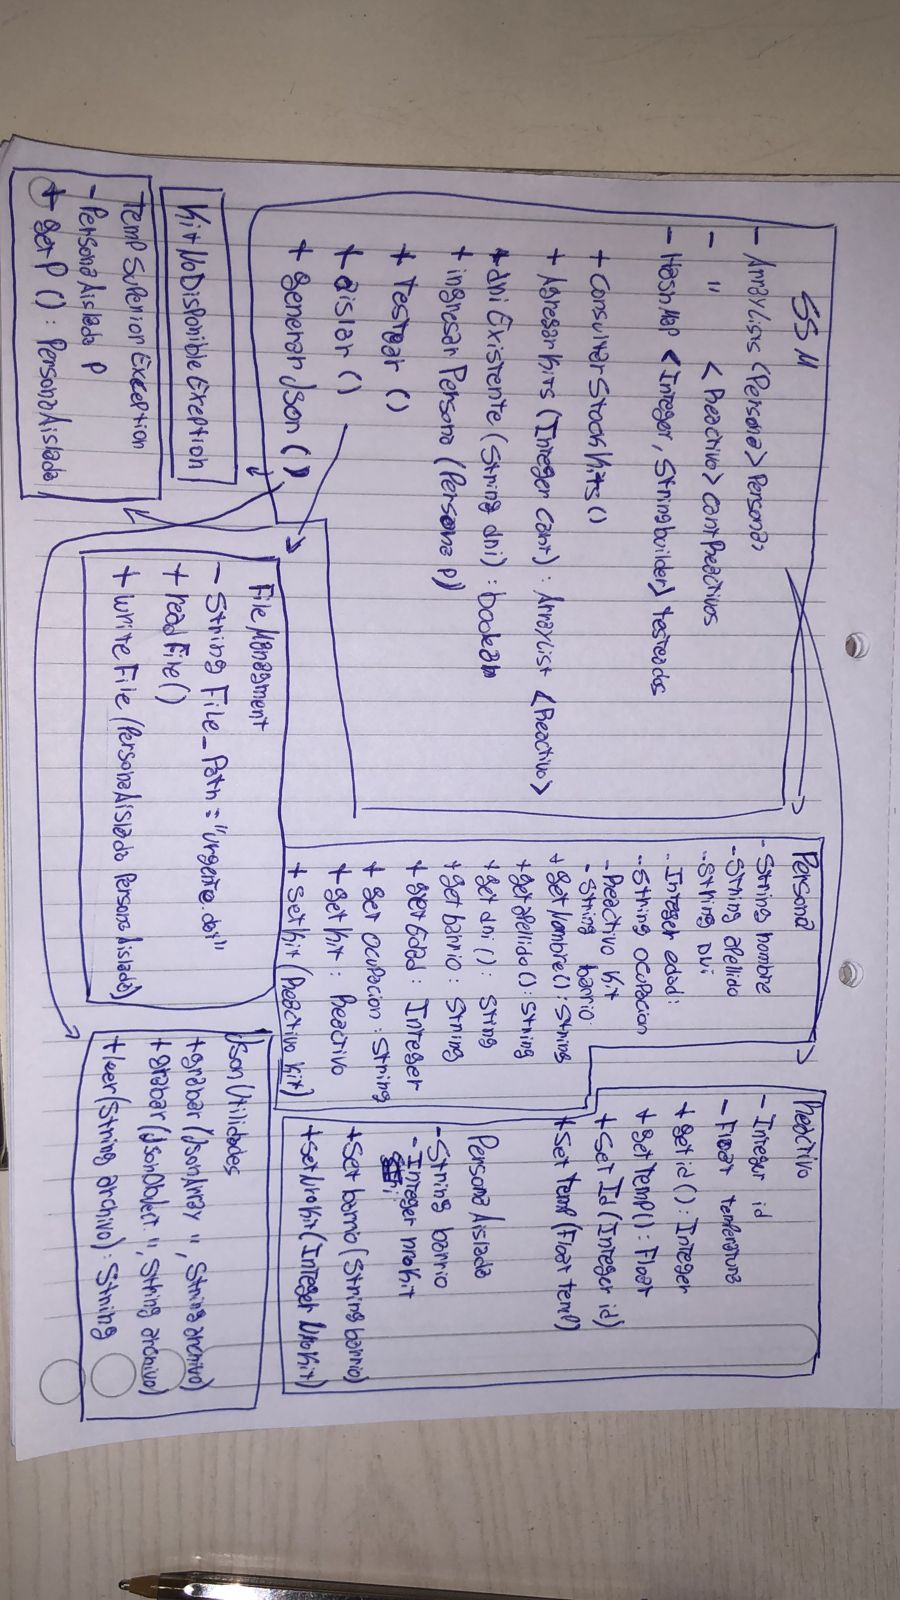 SSM
- ArrayLists <Persona> Personas
- " <Reactivo> cantReactivos
- HashMap <Integer, Stringbuilder> testeados
+ ConsultarStockKits()
+ AgregarKits (Integer cant) : ArrayList <Reactivo>
+ dniExistente (String dni) : boolean
+ ingresarPersona (Persona p)
+ Testear ()
+ aislar ()
+ generarJson ()
KitNoDisponibleExeption
TempSuperiorException
- PersonaAislada P
+ getP () : PersonaAislada
Persona
- String nombre
- String apellido
- String Dni
- Integer edad :
- String ocupacion
- Reactivo Kit
- String barrio
+ getNombre() : String
+ getApellido () : String
+ get dni () : String
+ get barrio : String
+ get Edad : Integer
+ get ocupacion : String
+ get Kit : Reactivo
+ set Kit (Reactivo Kit)
FileManagment
- String File_Path = "urgente.dat"
+ readFile()
+ writeFile (PersonaAislada PersonaAislada)
Reactivo
- Integer id
- Float temperatura
+ get id () : Integer
+ get temp () : Float
+ Set Id (Integer id)
+ Set Temp (Float temp)
PersonaAislada
- String barrio
- Integer nroKit
+ Set barrio (String barrio)
+ SetNroKit (Integer NroKit)
JsonUtilidades
+ grabar (JsonArray ", String archivo)
+ grabar (JsonObject ", String archivo)
+ leer (String archivo) : String